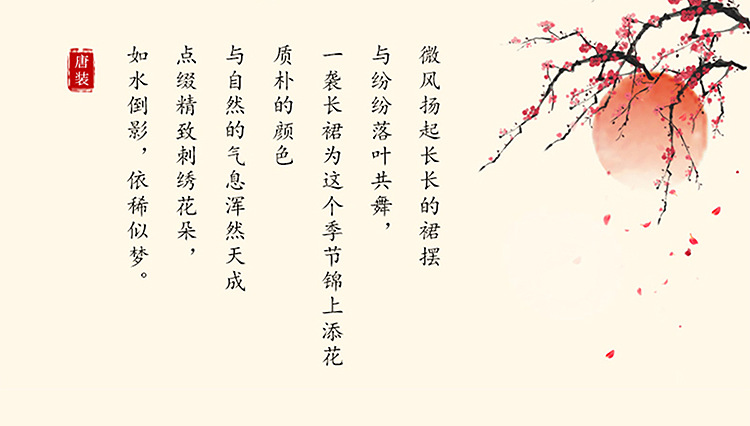 微风扬起长长的裙摆
与纷纷落叶共舞，
一袭长裙为这个季节锦上添花
质朴的颜色
与自然的气息浑然天成
点缀精致刺绣花朵，
如水倒影，依稀似梦。
唐装